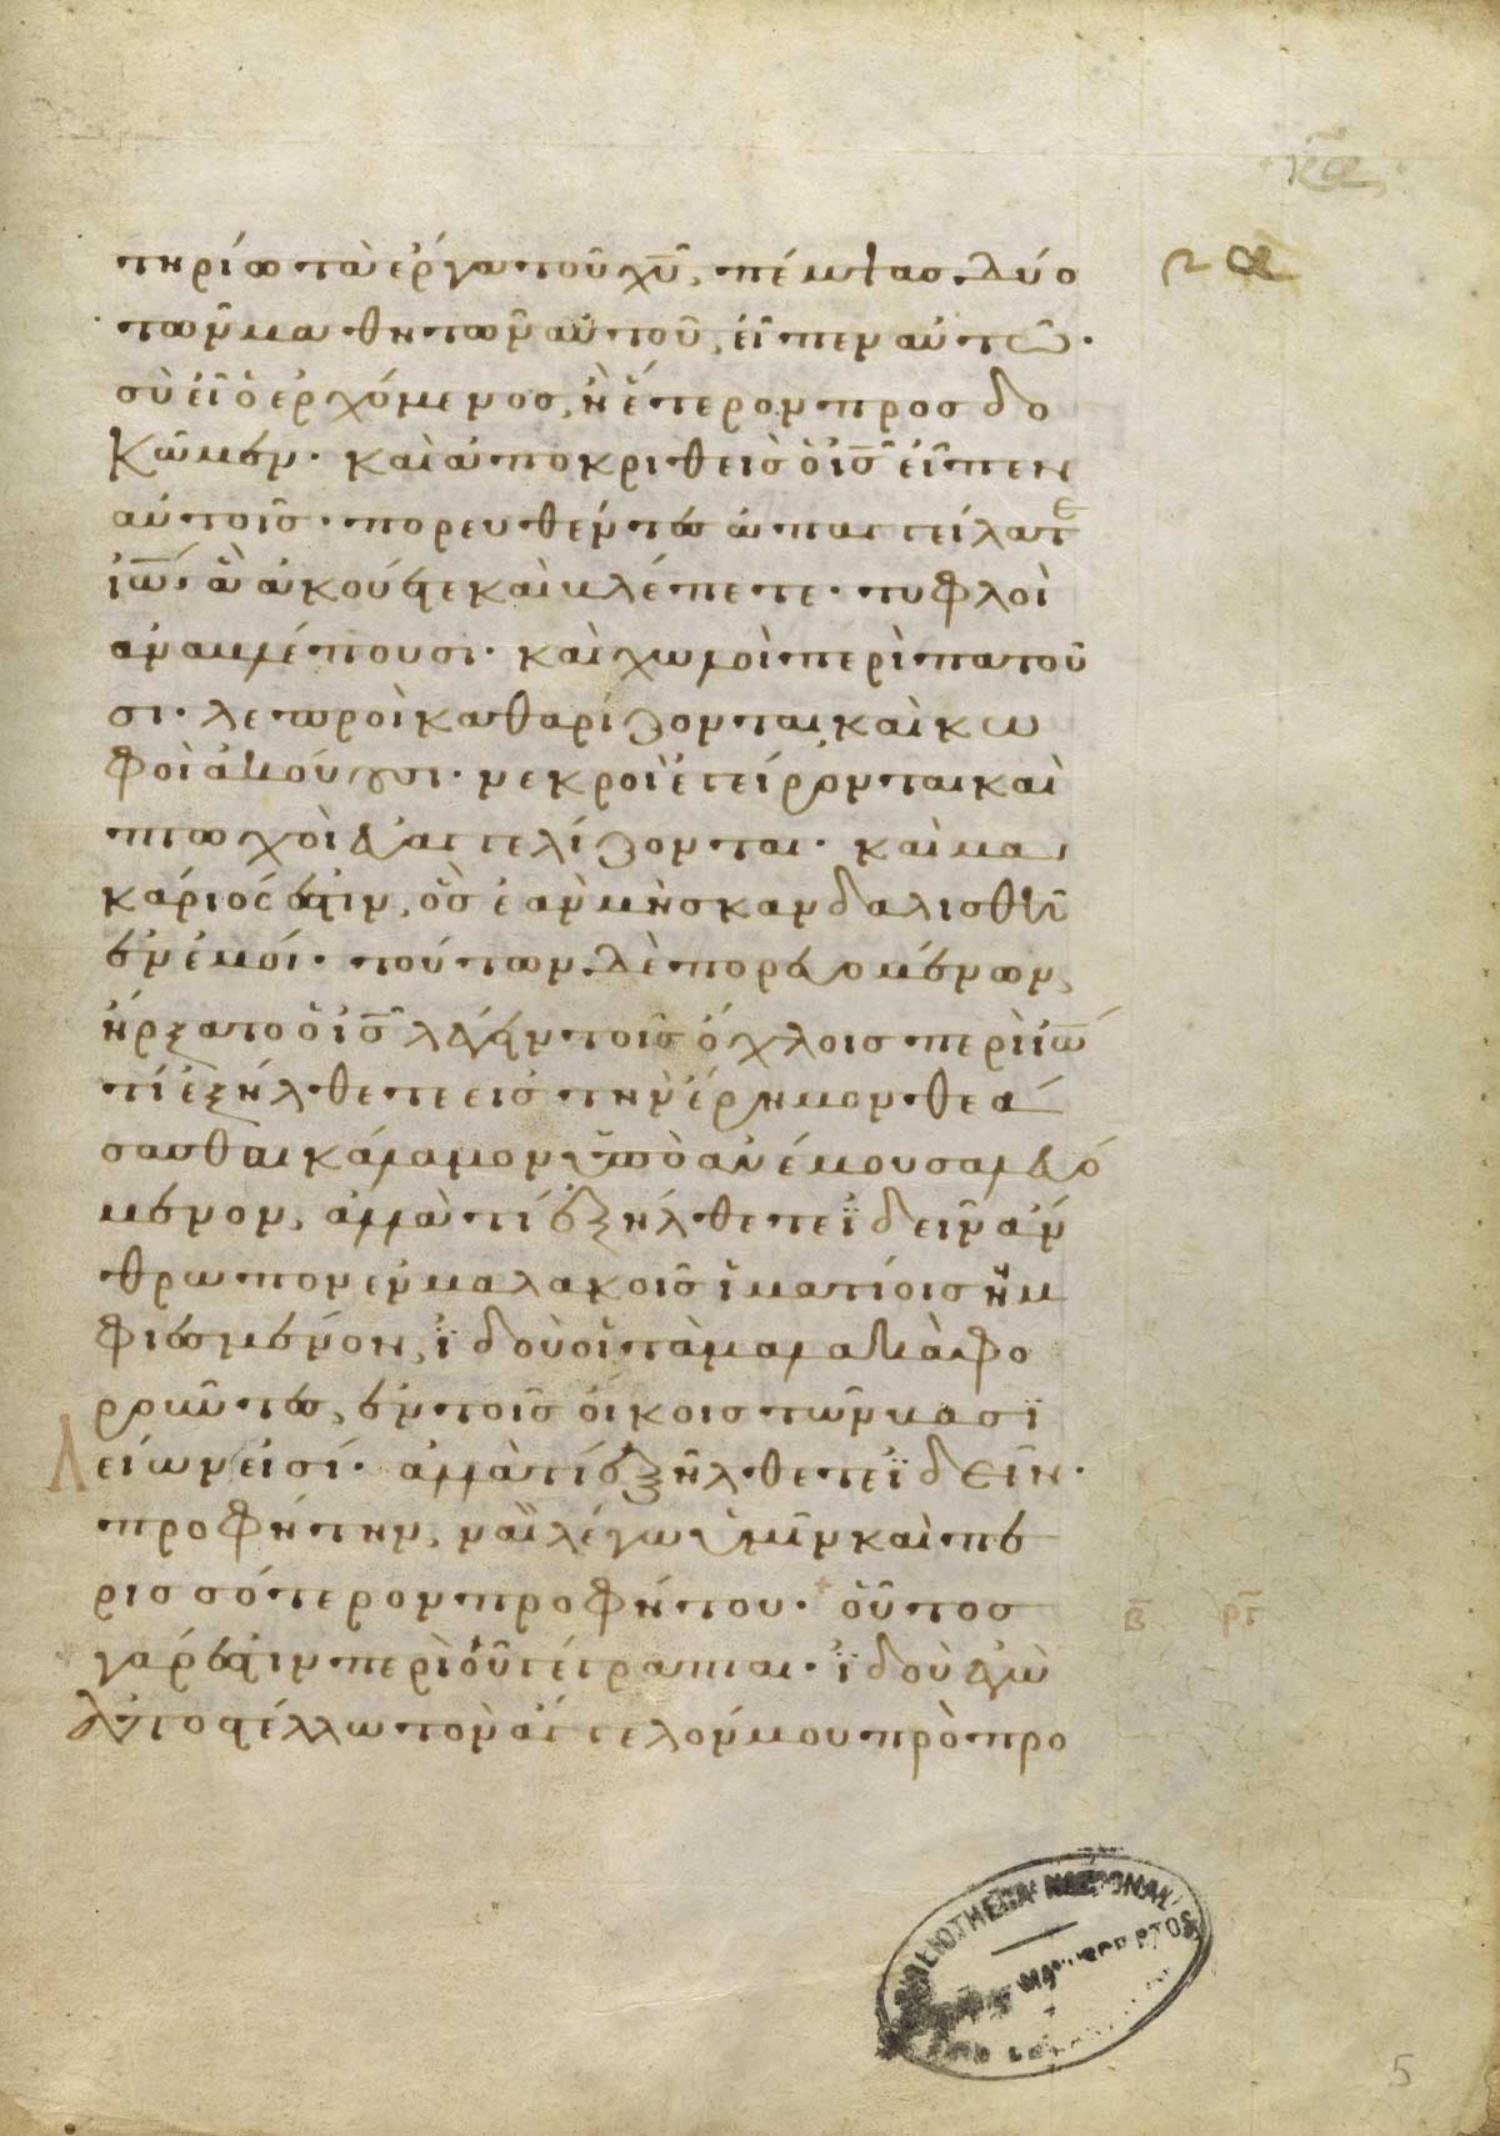 τηρίω τὰ ἔργα τοῦ χυ̅, πέμψας δύο
τῶν μαθητῶν αὐτοῦ, εἶπεν αὐτῶ·
σὺ εἶ ὁ ἐρχόμενος, ἢ ἕτερον προσδο
κῶμεν· καὶ ἀποκριθεὶς ὁ ις̅ εἶπεν
αὐτοῖς· πορευθέντες ἀπαγγείλατε
ιω̅, ἃ ἀκούετε καὶ βλέπετε· τυφλοὶ
ἀναβλέπουσι· καὶ χωλοὶ περιπατοῦ
σι· λεπροὶ καθαρίζονται, καὶ κω
φοὶ ἀκούουσι· νεκροὶ ἐγείρονται καὶ
πτωχοὶ εὐαγγελίζονται· καὶ μα
κάριός ἐστιν, ὃς ἐὰν μὴ σκανδαλισθῆ
ἐν ἐμοί· τούτων δὲ πορευομένων,
ἤρξατο ὁ ις̅ λέγειν τοῖς ὄχλοις περὶ ιω̅
τί ἐξήλθετε εἰς τὴν ἔρημον θεά
σασθαι κάλαμον ὑπὸ ἀνέμου σαλευό
μενον, ἀλλὰ τί ἐξήλθετε ϊδεῖν ἄν
θρωπον ἐν μαλακοῖς ἱματίοις ἠμ
φιεσμένον, ϊδοὺ οἱ τὰ μαλακὰ φο
ροῦντες, ἐν τοῖς οἴκοις τῶν βασι
λείων εἰσί· ἀλλὰ τί ἐξήλθετε ϊδεῖν·
προφήτην, ναὶ λέγω ὑμῖν καὶ πε
ρισσότερον προφήτου· οὗτος
γάρ ἐστιν περὶ οὗ γέγραπται· ϊδοὺ ἐγὼ
ἀποστέλλω τὸν ἄγγελόν μου πρὸ προ
β̅ ργ̅
BIBLIOTHECA NACIONAL
5